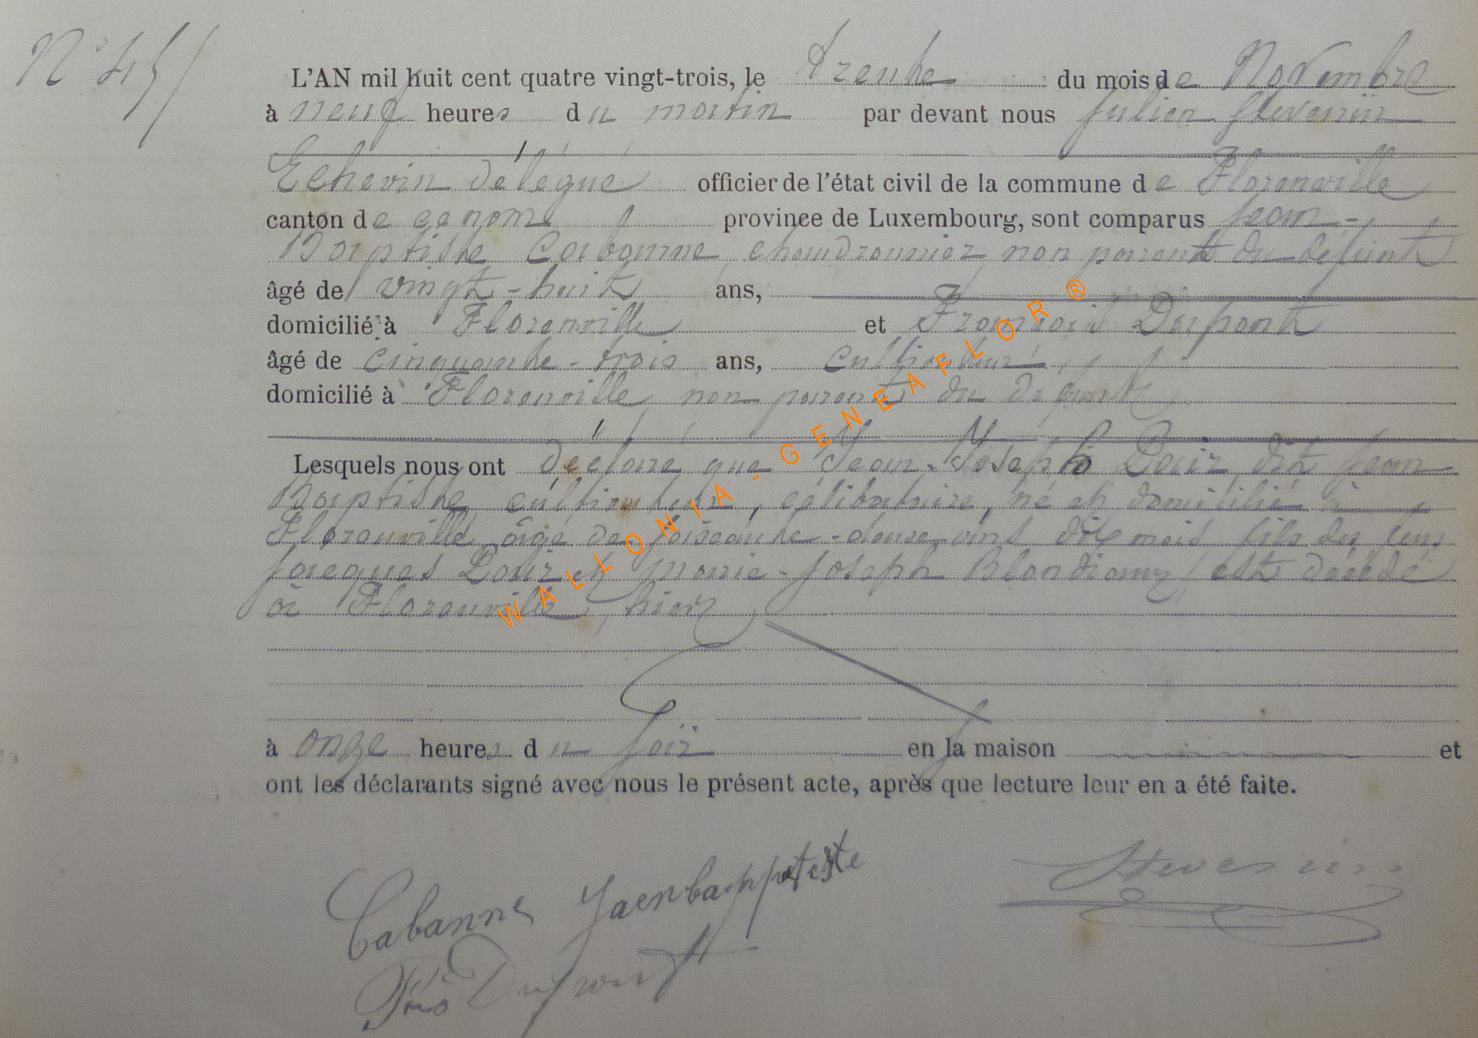 N° 45
L'AN mil huit cent quatre vingt-trois, le trente du mois de Novembre
à neuf heures du matin par devant nous Julien Stevenin
Echevin délégué officier de l'état civil de la commune de Florenville
canton de ce nom province de Luxembourg, sont comparus Jean-
Baptiste Cabanne, chaudronnier, non parent du défunt
âgé de vingt-huit ans,
domicilié à Florenville et François Dupont
âgé de cinquante-trois ans, cultivateur,
domicilié à Florenville, non parent du défunt
Lesquels nous ont déclaré que Jean-Joseph dit Jean
Baptiste cultivateur, célibataire, né et domicilié à
Florenville âgé de soixante-douze ans dix mois fils des feus
Jacques et Marie-Joseph est décédé
à Florenville, hier
à onze heures du soir en la maison et
ont les déclarants signé avec nous le présent acte, après que lecture leur en a été faite.
Cabanne Jaenbapptiste
Stevenin
Fois Dupont
WALLONIA-GENEAFLOR®